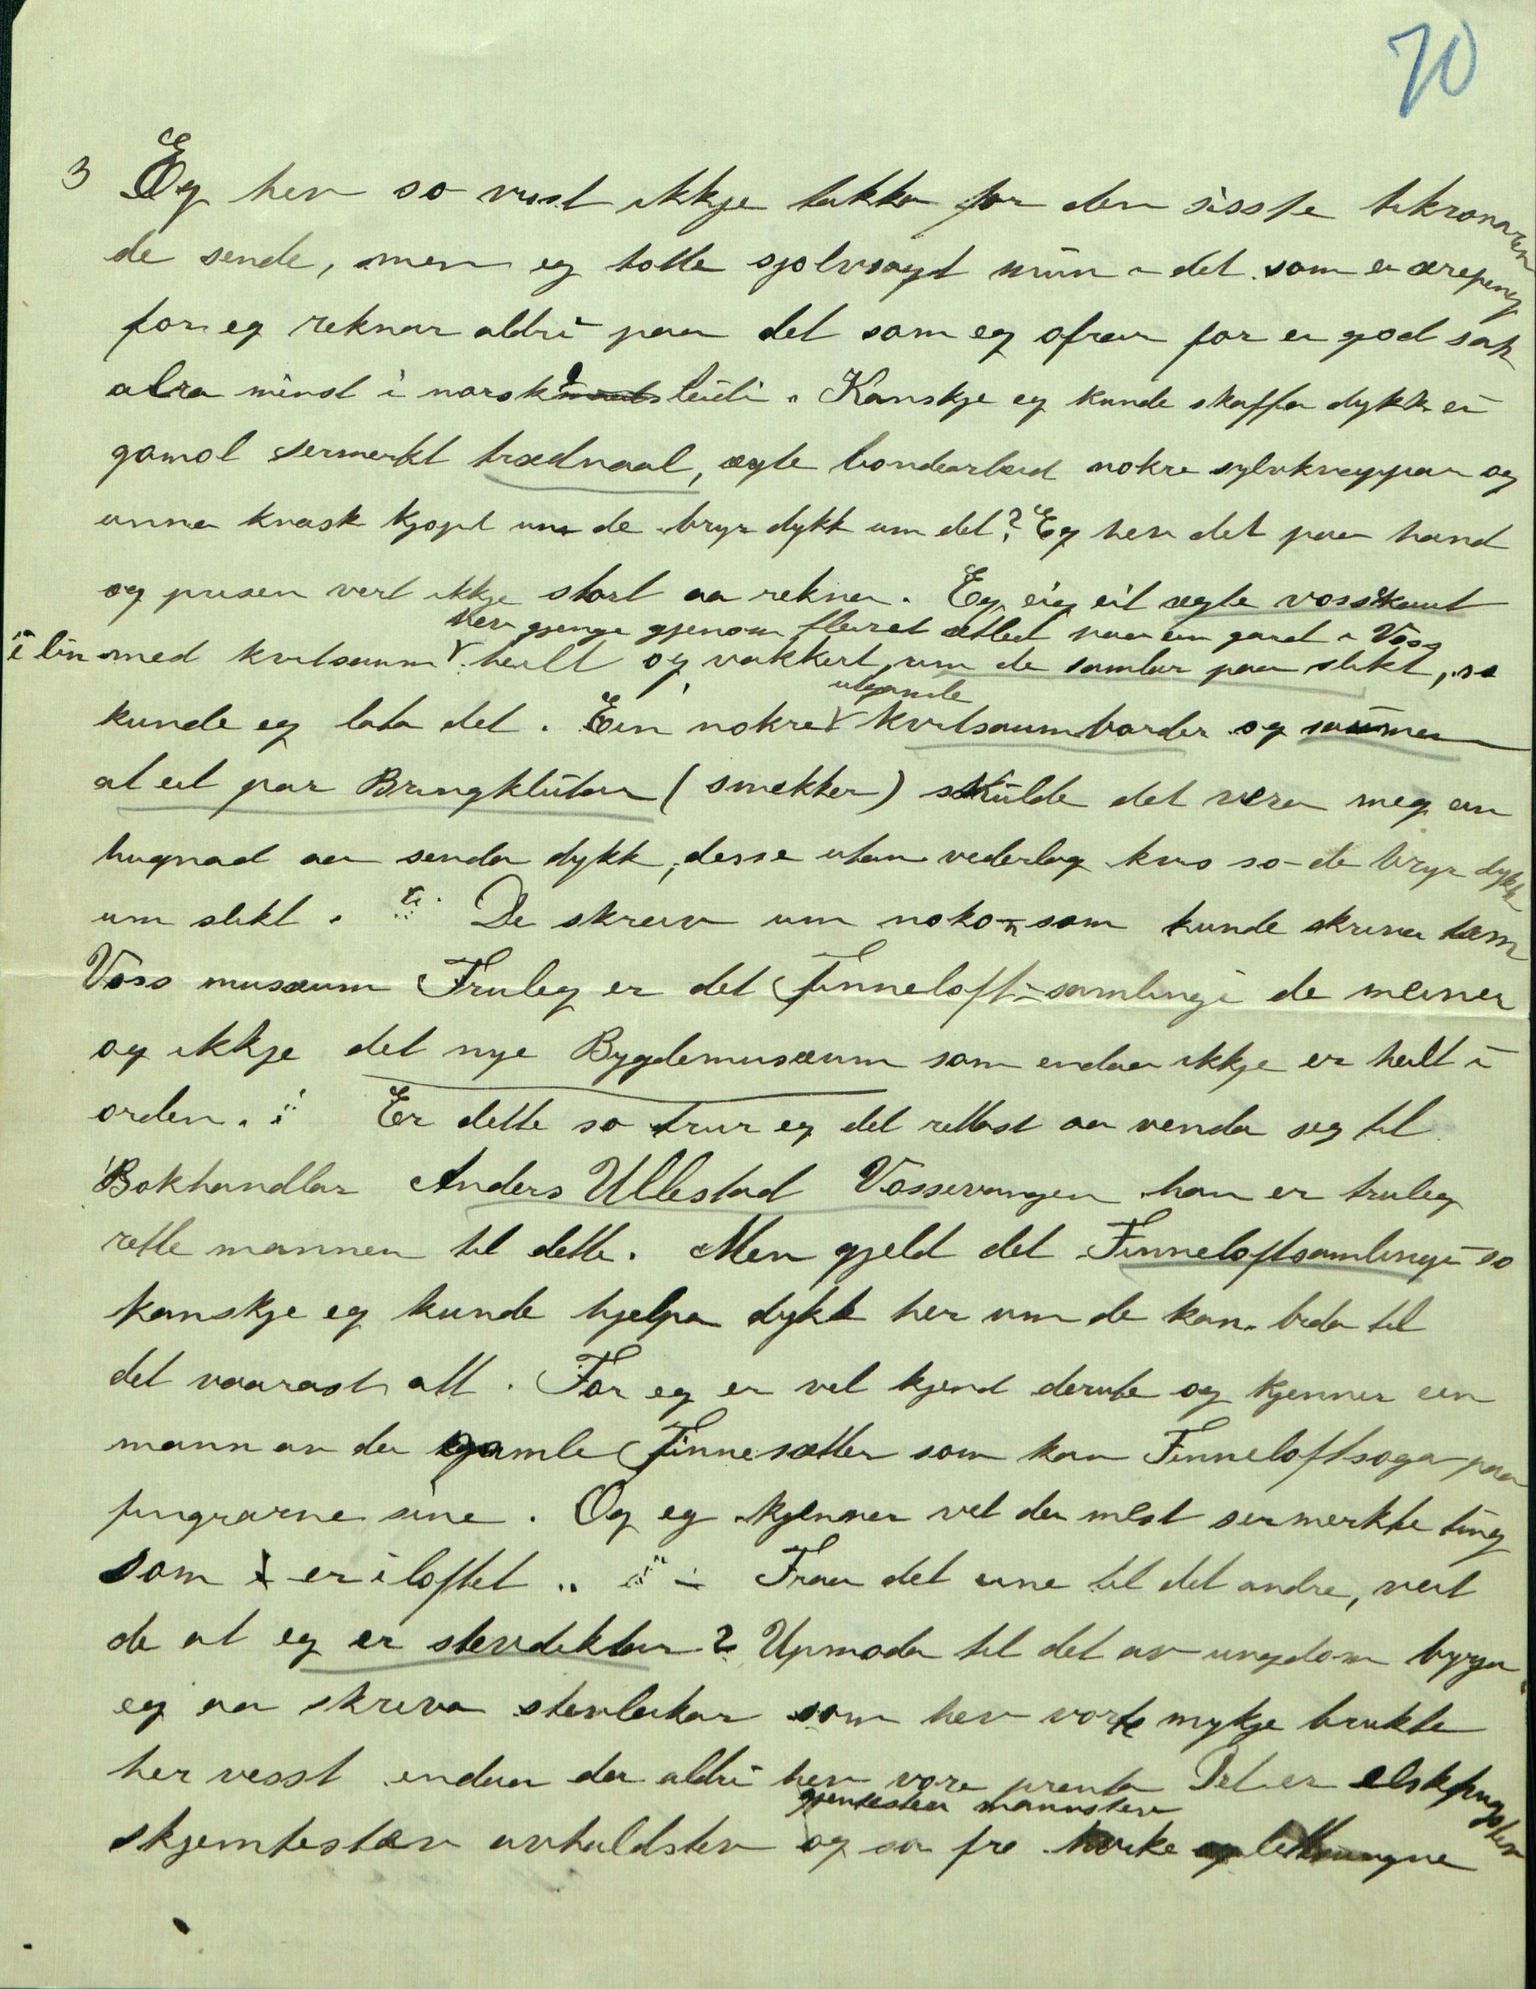 70
3 Eg hev so visst ikkje takka for den sisste tikronaren
de sende, men eg totte sjolvsagt mun i det som ei ærepeng
for eg reknar aldri paa det som eg ofrar for ei god sak
alra minst i norskdomsleidi. Kanskje eg kunde skaffa dykk ei
gamol sermerkt trædnaal, ægte bondearbeid nokre sylvknappar og
anna knask kjøpt um de bryr dykk um det? Eg hev det paa hand
og prisen vert ikkje stort aa rekna. Eg eig eit ægte vosseskaut
hev gjenge gjenom fleire ætled paa ein gard i Voss
i lin med kvitsaum heilt og vakkert, um de samlar paa slikt, so
kunde eg lata det. Ein nokre utgamle kvitsaumbordar og saumen
at eit par Bringklutar (smekker) skulde det vera meg ein
hugnad aa senda dykk, desse utan vederlag kvis so de bryr dykk
um slikt. De skreiv um nokon som kunde skriva um
Voss musæum Truleg er det Finneloft-samlingi de meiner
og ikkje det nye Bygdemusæum som endaa ikkje er heilt i
orden. Er dette so trur eg det rettast aa venda seg til
Bokhandlar Anders Ullestad Vossevangen han er truleg
rette mannen til dette. Men gjeld det Finneloftsamlingi so
kanskje eg kunde hjelpa dykk her um de kan bida til
det vaarast att. For eg er vel kjend derute og kjenner ein
mann av den gamle Finneætten som kan Finneloftsoga paa
fingrarne sine. Og eg kjenner vel dei mest sermerkte ting
som er i loftet .. Fraa det eine til det andre, veit
de at eg er stevdiktar? Upmoda til det av ungdom byrja
eg aa skriva stevleikar som hev vorte mykje brukte
her visst endaa dei aldri hev vore prenta Det er elskhugstev
gjentestev mannstev
skjemtestev avhaldstev og so fra